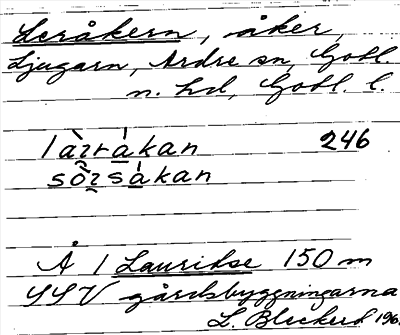 Leråkern, åker,
Ljugarn, Ardre sn, Gotl.
n. hd, Gotl. l.
lạ̀ɪrạ́kan 246
sộɪsạ́kan
Å 1 Lauritse 150 m
SSV gårdsbyggningarna
L. Bleckert 196